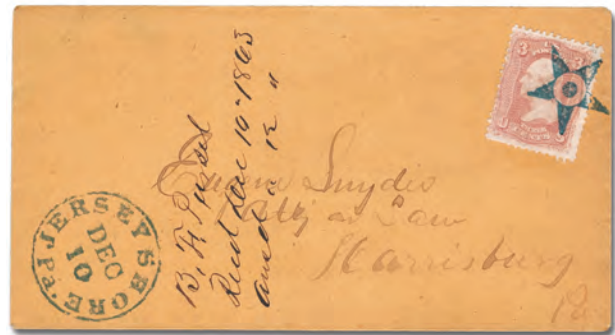 3 3
JERSEY SHORE. Pa.
DEC
10
B. F. Pursel
Recd Dec 10-1863
Ansd " 12 "
Eugene Snyder
Atty at Law
Harrisburg
Pa